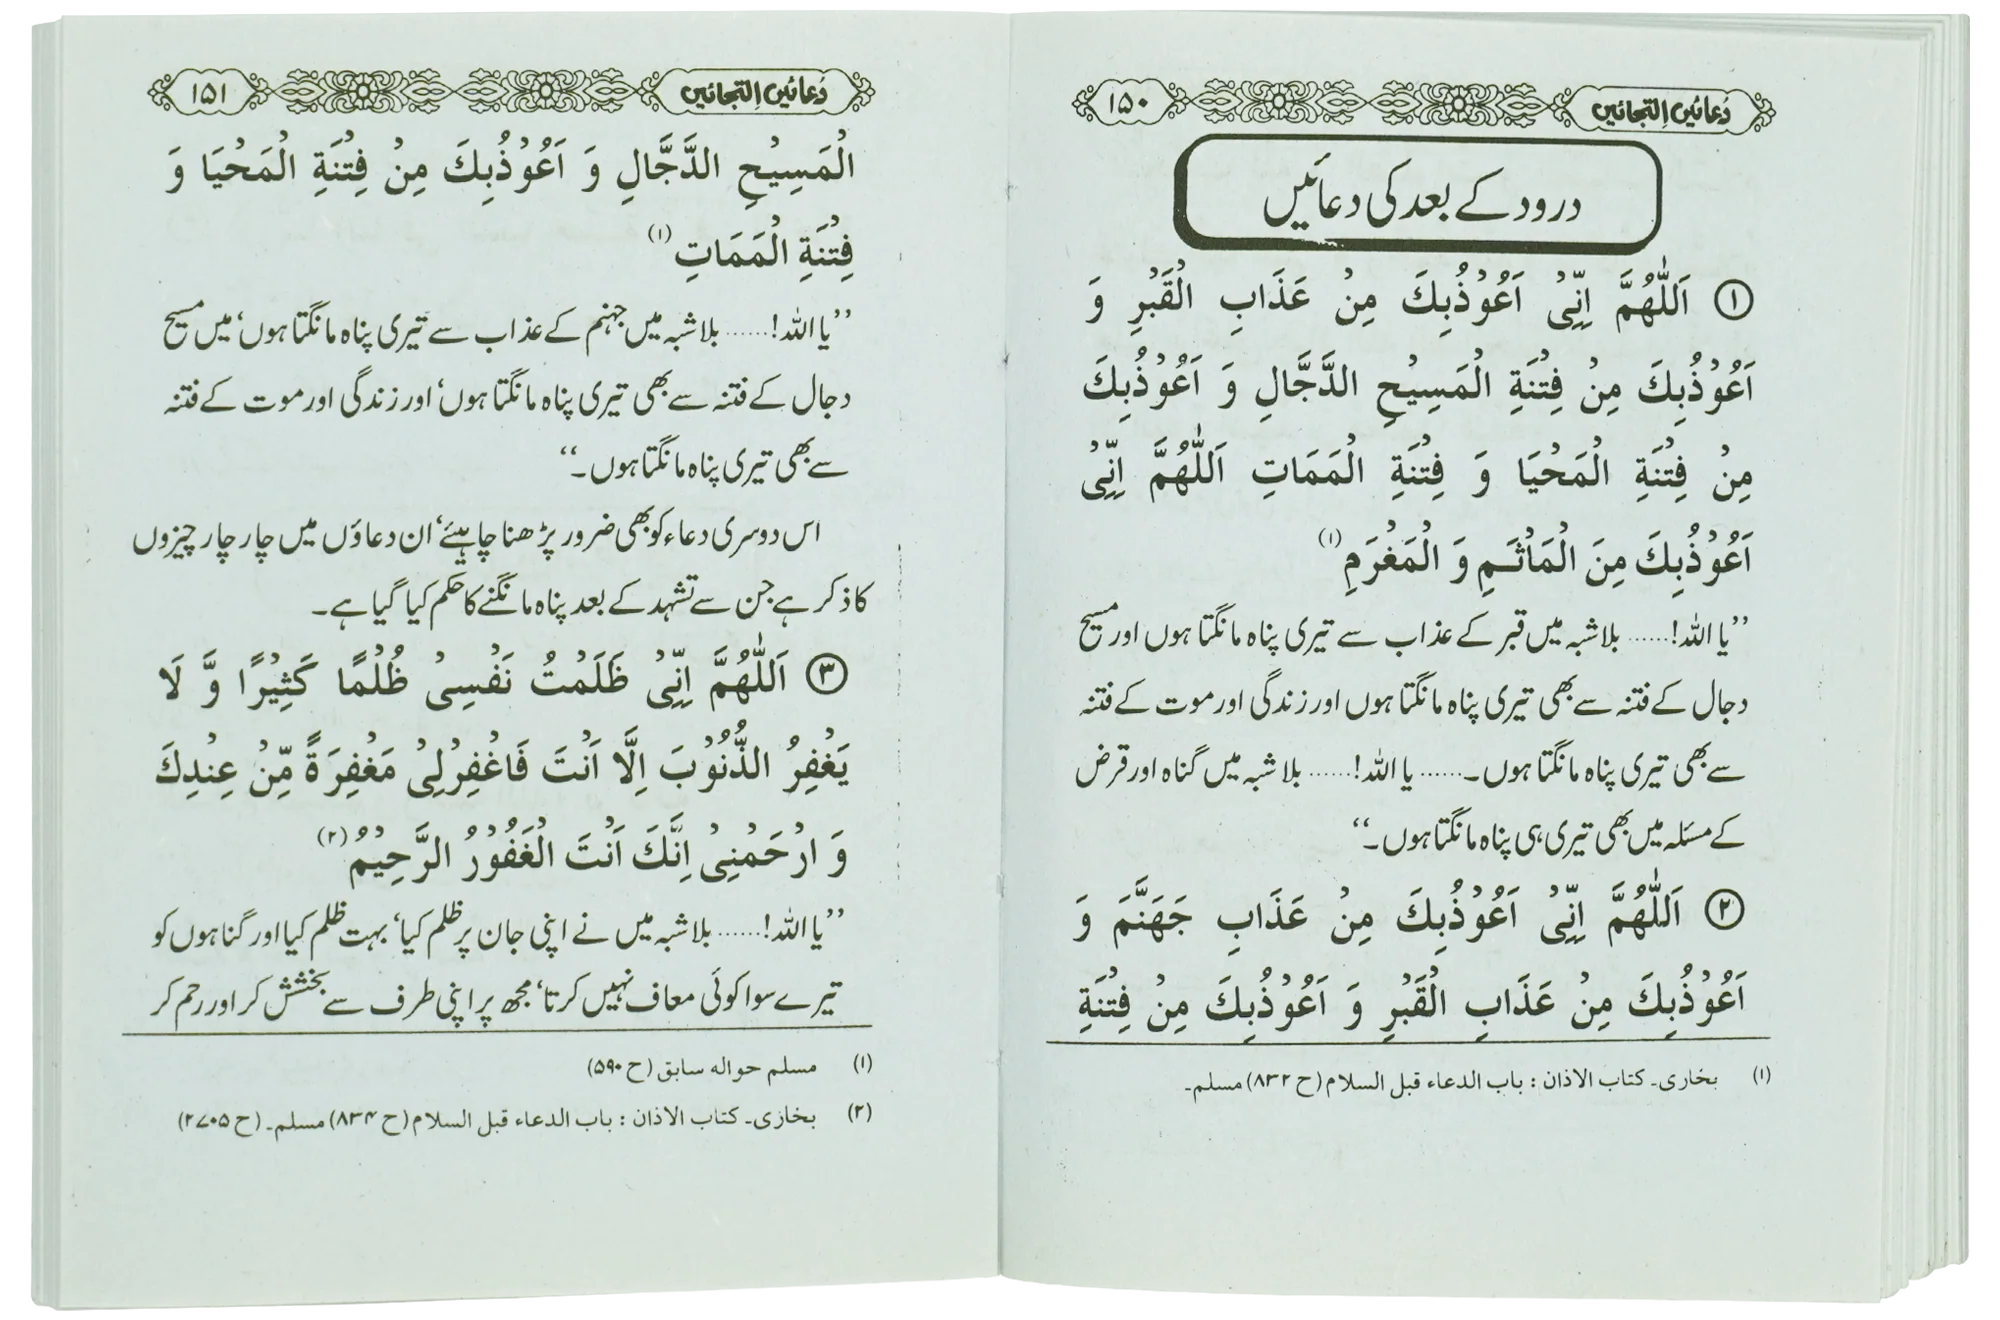 دُعائیں اِلتجائیں ۱۵۰
درود کے بعد کی دعائیں
① اَللّٰهُمَّ اِنِّیْ اَعُوْذُبِكَ مِنْ عَذَابِ الْقَبْرِ وَ
اَعُوْذُبِكَ مِنْ فِتْنَةِ الْمَسِيْحِ الدَّجَّالِ وَ اَعُوْذُبِكَ
مِنْ فِتْنَةِ الْمَحْيَا وَ فِتْنَةِ الْمَمَاتِ اَللّٰهُمَّ اِنِّیْ
اَعُوْذُبِكَ مِنَ الْمَأْثَمِ وَ الْمَغْرَمِ (۱)
’’یا اللہ!...... بلاشبہ میں قبر کے عذاب سے تیری پناہ مانگتا ہوں اور مسیح
دجال کے فتنہ سے بھی تیری پناہ مانگتا ہوں اور زندگی اور موت کے فتنہ
سے بھی تیری پناہ مانگتا ہوں۔...... یا اللہ!...... بلاشبہ میں گناہ اور قرض
کے مسئلہ میں بھی تیری ہی پناہ مانگتا ہوں۔‘‘
② اَللّٰهُمَّ اِنِّیْ اَعُوْذُبِكَ مِنْ عَذَابِ جَهَنَّمَ وَ
اَعُوْذُبِكَ مِنْ عَذَابِ الْقَبْرِ وَ اَعُوْذُبِكَ مِنْ فِتْنَةِ
(۱) بخاری۔ کتاب الاذان : باب الدعاء قبل السلام (ح ۸۳۲) مسلم۔
دُعائیں اِلتجائیں ۱۵۱
الْمَسِيْحِ الدَّجَّالِ وَ اَعُوْذُبِكَ مِنْ فِتْنَةِ الْمَحْيَا وَ
فِتْنَةِ الْمَمَاتِ (۱)
’’یا اللہ!...... بلاشبہ میں جہنم کے عذاب سے تیری پناہ مانگتا ہوں‘ میں مسیح
دجال کے فتنہ سے بھی تیری پناہ مانگتا ہوں‘ اور زندگی اور موت کے فتنہ
سے بھی تیری پناہ مانگتا ہوں۔‘‘
اس دوسری دعاء کو بھی ضرور پڑھنا چاہیئے‘ ان دعاؤں میں چار چار چیزوں
کا ذکر ہے جن سے تشہد کے بعد پناہ مانگنے کا حکم کیا گیا ہے۔
③ اَللّٰهُمَّ اِنِّیْ ظَلَمْتُ نَفْسِیْ ظُلْمًا كَثِيْرًا وَّ لَا
يَغْفِرُ الذُّنُوْبَ اِلَّا اَنْتَ فَاغْفِرْلِیْ مَغْفِرَةً مِّنْ عِنْدِكَ
وَ ارْحَمْنِیْ اِنَّكَ اَنْتَ الْغَفُوْرُ الرَّحِيْمُ (۲)
’’یا اللہ!...... بلاشبہ میں نے اپنی جان پر ظلم کیا‘ بہت ظلم کیا اور گناہوں کو
تیرے سوا کوئی معاف نہیں کرتا‘ مجھ پر اپنی طرف سے بخشش کر اور رحم کر
(۱) مسلم حواله سابق (ح ۵۹۰)
(۲) بخاری۔ کتاب الاذان : باب الدعاء قبل السلام (ح ۸۳۴) مسلم۔ (ح ۲۷۰۵)